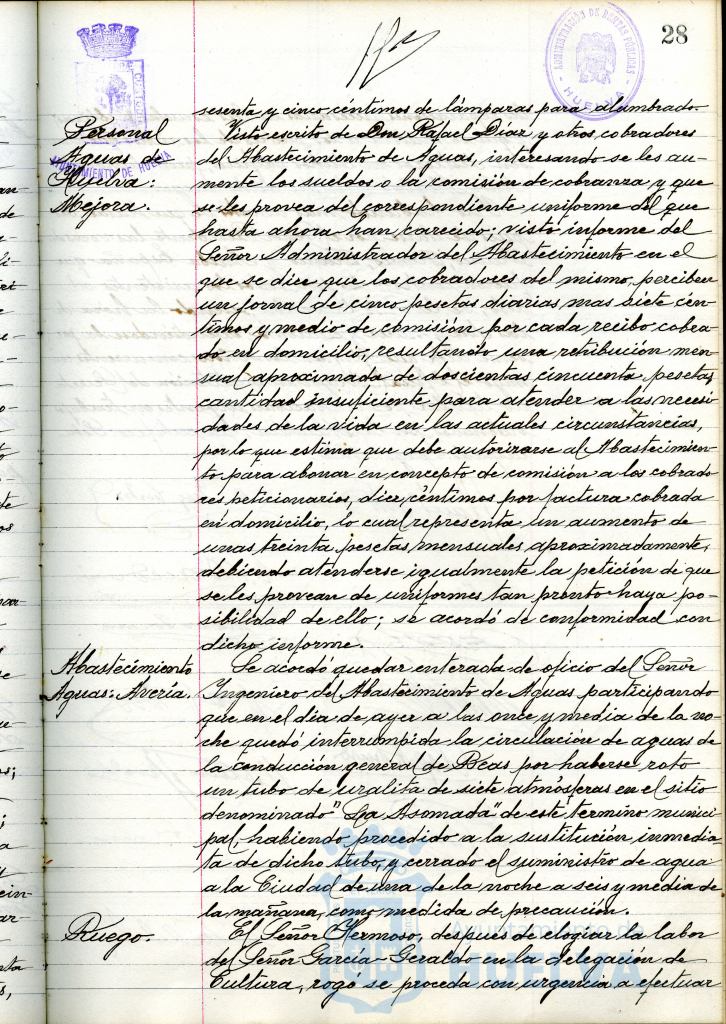 28
ADMINISTRACIÓN DE RENTAS PÚBLICAS
HUELVA
AYUNTAMIENTO DE HUELVA
sesenta y cinco céntimos de lámparas para alumbrado.
Personal
Aguas de
Huelva:
Mejora.
Visto escrito de Don Rafael Díaz y otros, cobradores
del Abastecimiento de Aguas, interesando se les au-
mente los sueldos o la comisión de cobranza y que
se les provea del correspondiente uniforme del que
hasta ahora han carecido; visto informe del
Señor Administrador del Abastecimiento en el
que se dice que los cobradores del mismo, perciben
un jornal de cinco pesetas diarias mas siete cén-
timos y medio de comisión por cada recibo cobra-
do en domicilio, resultando una retribución men-
sual aproximada de doscientas cincuenta pesetas,
cantidad insuficiente para atender a las necesi-
dades de la vida en las actuales circunstancias,
por lo que estima que debe autorizarse al Abastecimien-
to para abonar en concepto de comisión a los cobrado
res peticionarios, diez céntimos por factura cobrada
en domicilio, lo cual representa un aumento de
unas treinta pesetas mensuales aproximadamente,
debiendo atenderse igualmente la petición de que
se les provean de uniformes tan pronto haya po-
sibilidad de ello; se acordó de conformidad con
dicho informe.
Abastecimiento
Aguas: Avería.
Se acordó quedar enterada de oficio del Señor
Ingeniero del Abastecimiento de Aguas participando
que en el día de ayer a las once y media de la no-
che quedó interrumpida la circulación de aguas de
la conducción general de Beas por haberse roto
un tubo de uralita de siete atmósferas en el sitio
denominado "La Asomada" de este término munici-
pal, habiendo procedido a la sustitución inmedia
ta de dicho tubo, y cerrado el suministro de agua
a la Ciudad de una de la noche a seis y media de
la mañana, como medida de precaución.
Ruego.
El Señor Hermoso, después de elogiar la labor
del Señor García-Geraldo en la delegación de
Cultura, rogó se proceda con urgencia a efectuar
Ayuntamiento de
HUELVA